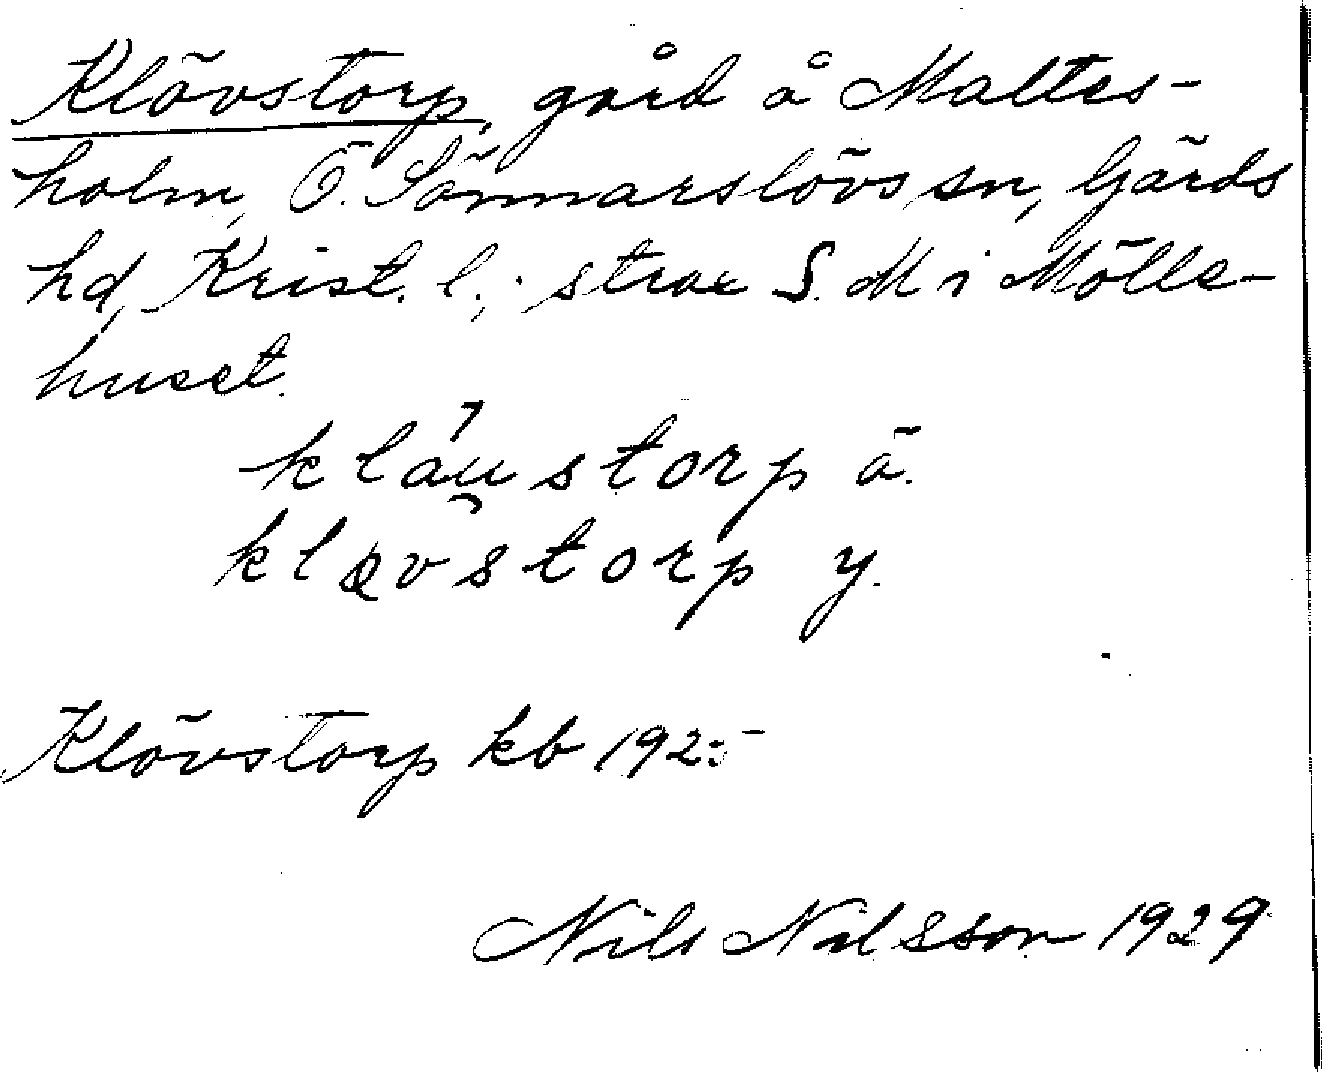 Klövstorp, gård å Maltes-
holm, Ö. Sönnarslövs sn, Gärds
hd, Krist. l.; strax S. M i Mölle-
huset.
kláustorp ä.
kløvstorp y.
Klövstorp kb 1925
Nils Nilsson 1929